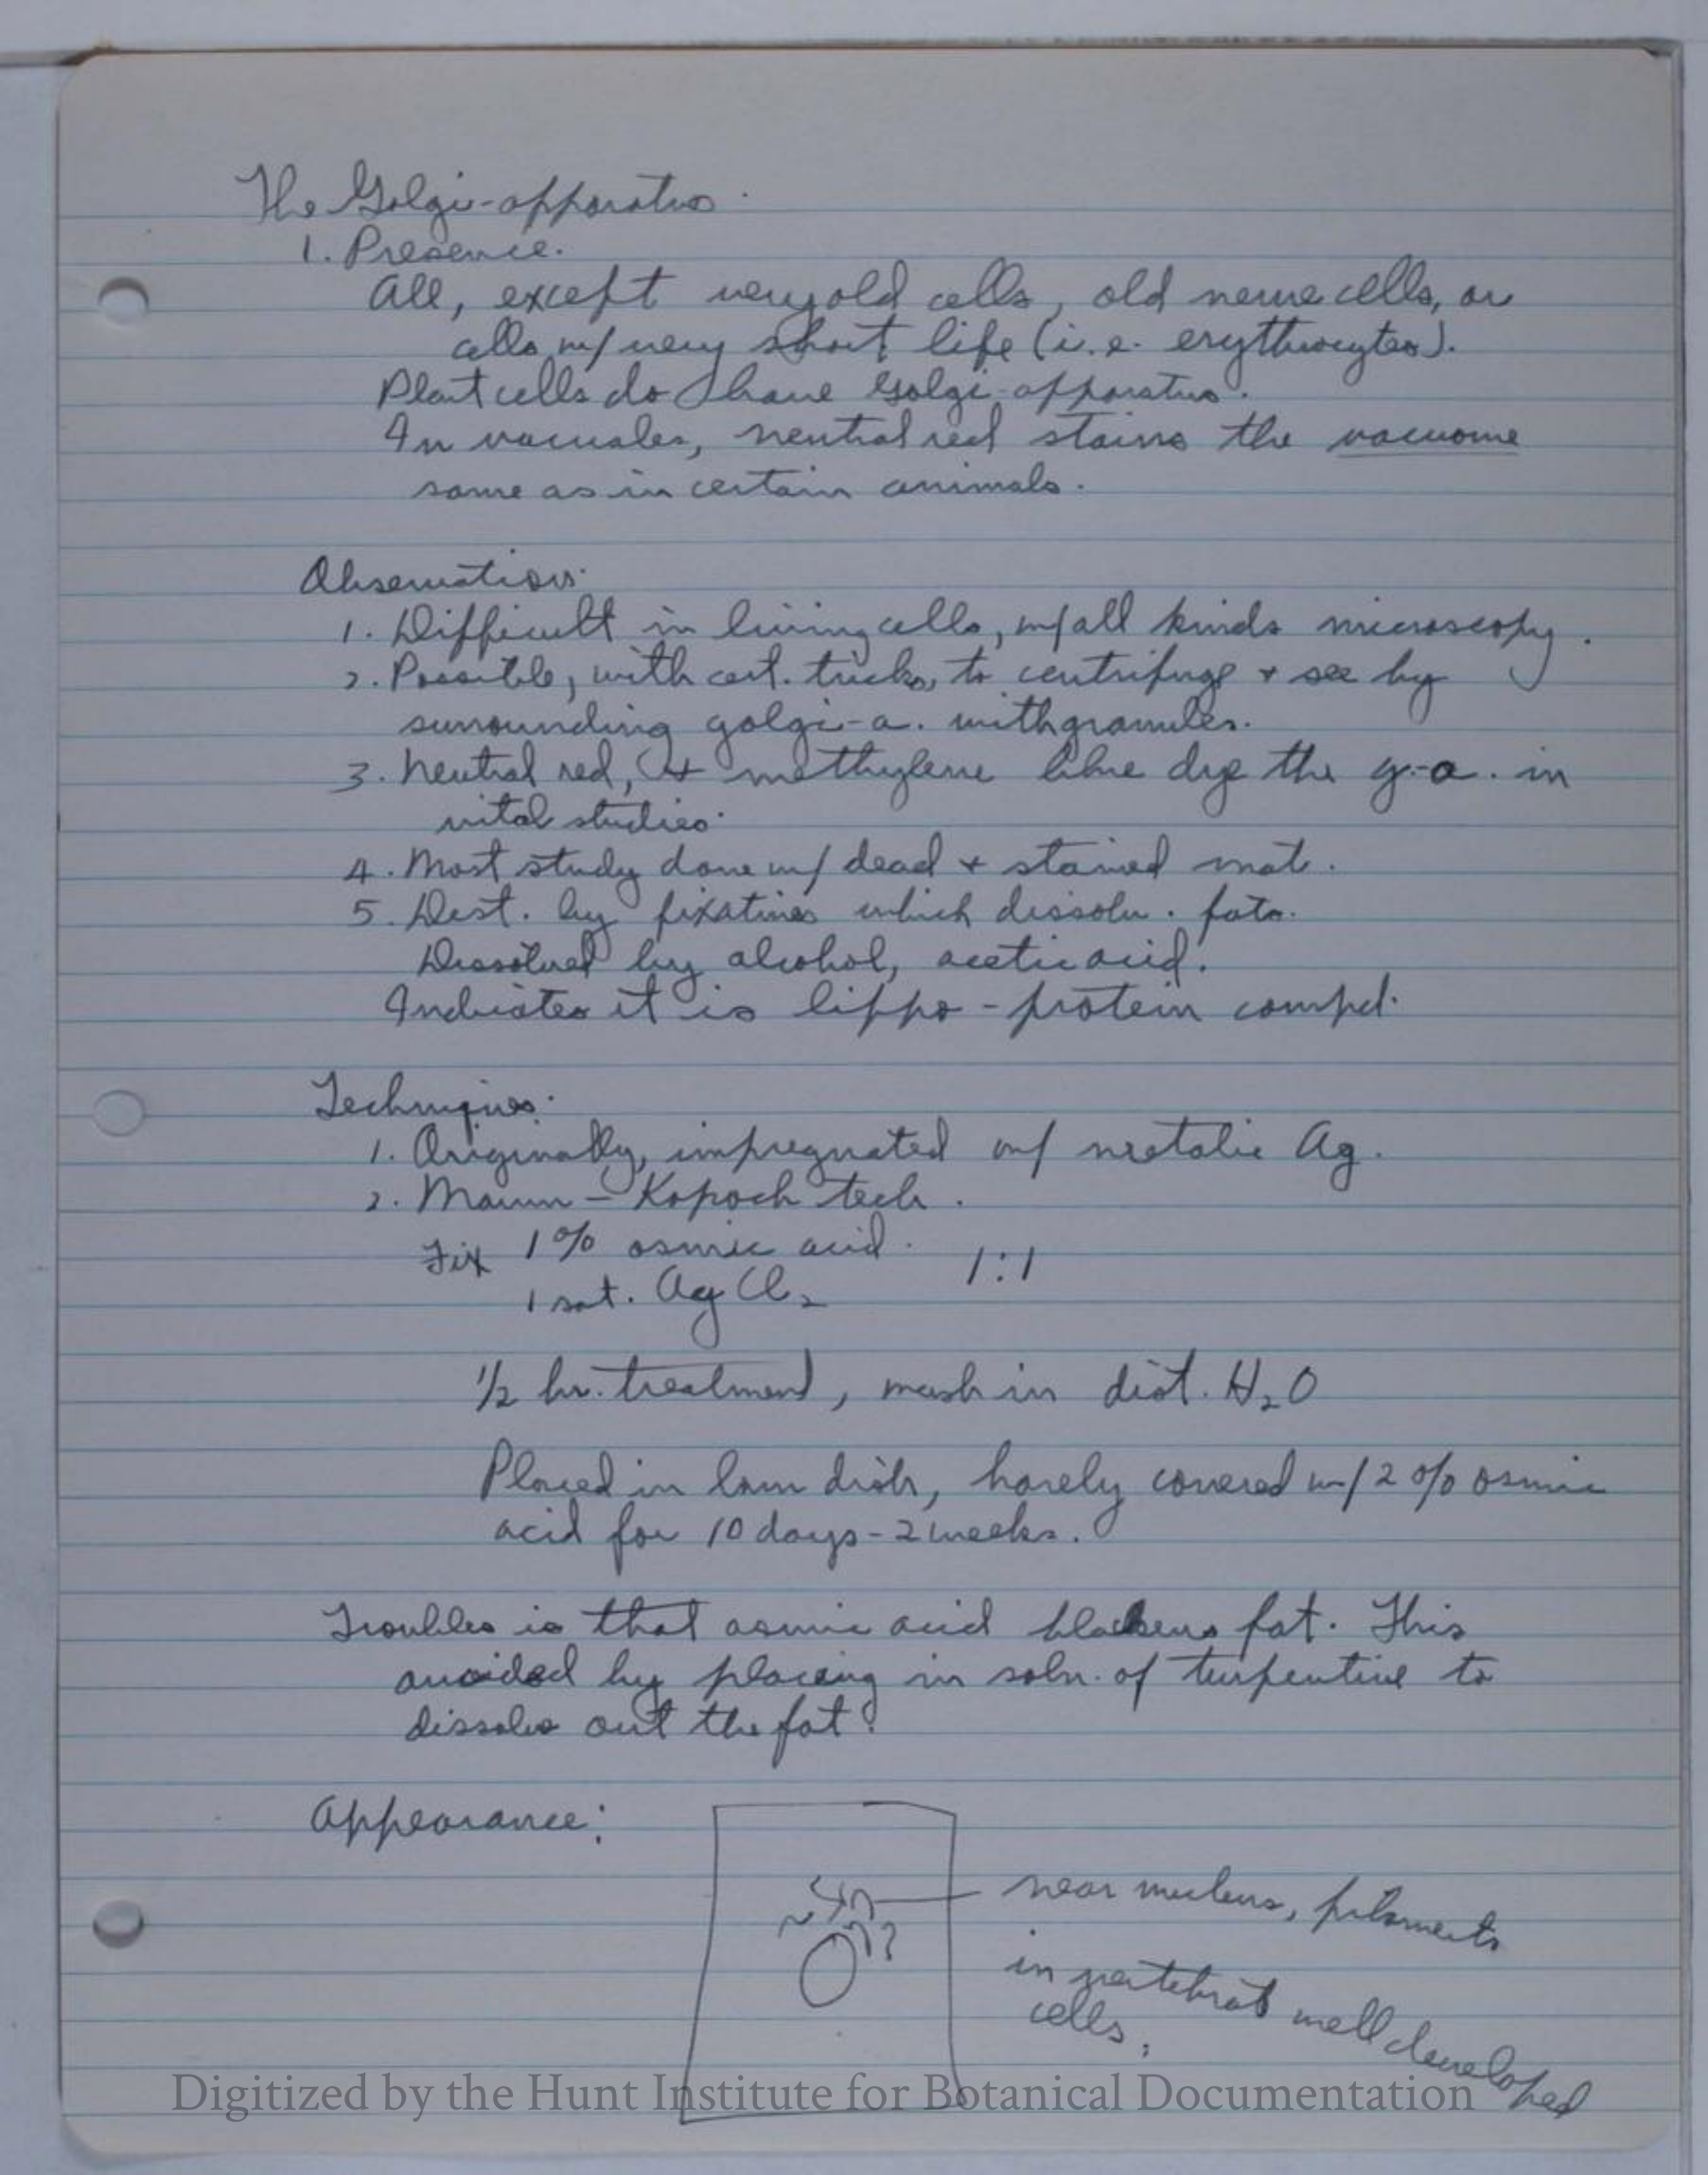 The Golgi-apparatus.
1. Presence.
All, except very old cells, old nerve cells, or
cells w/ very short life (i.e. erythrocytes).
Plant cells do have Golgi-apparatus.
In vacuoles, neutral red stains the vacuome
same as in certain animals.
Observation:
1. Difficult in living cells, w/ all kinds microscopy.
2. Possible, with cert. tricks, to centrifuge + see by
surrounding golgi-a. with granules.
3. Neutral red, + methylene blue dye the g-a. in
vital studies.
4. Most study done w/ dead + stained mat.
5. Dest. by fixatives which dissolv. fats.
Dissolved by alcohol, acetic acid.
Indicates it is lippo-protein compd.
Techniques.
1. Originally, impregnated w/ metalic Ag.
2. Mann - Kopoch tech.
Fix 1% osmic acid. 1:1
1 sat. Ag Cl2
1/2 hr. treatment, wash in dist. H2O
Placed in low dish, barely covered w/ 2% osmic
acid for 10 days - 2 weeks.
Troubles is that osmic acid blackens fat. This
avoided by placing in soln. of turpentine to
dissolve out the fat.
Appearance:
near nucleus, filaments
in vertebrat well developed
cells.
Digitized by the Hunt Institute for Botanical Documentation